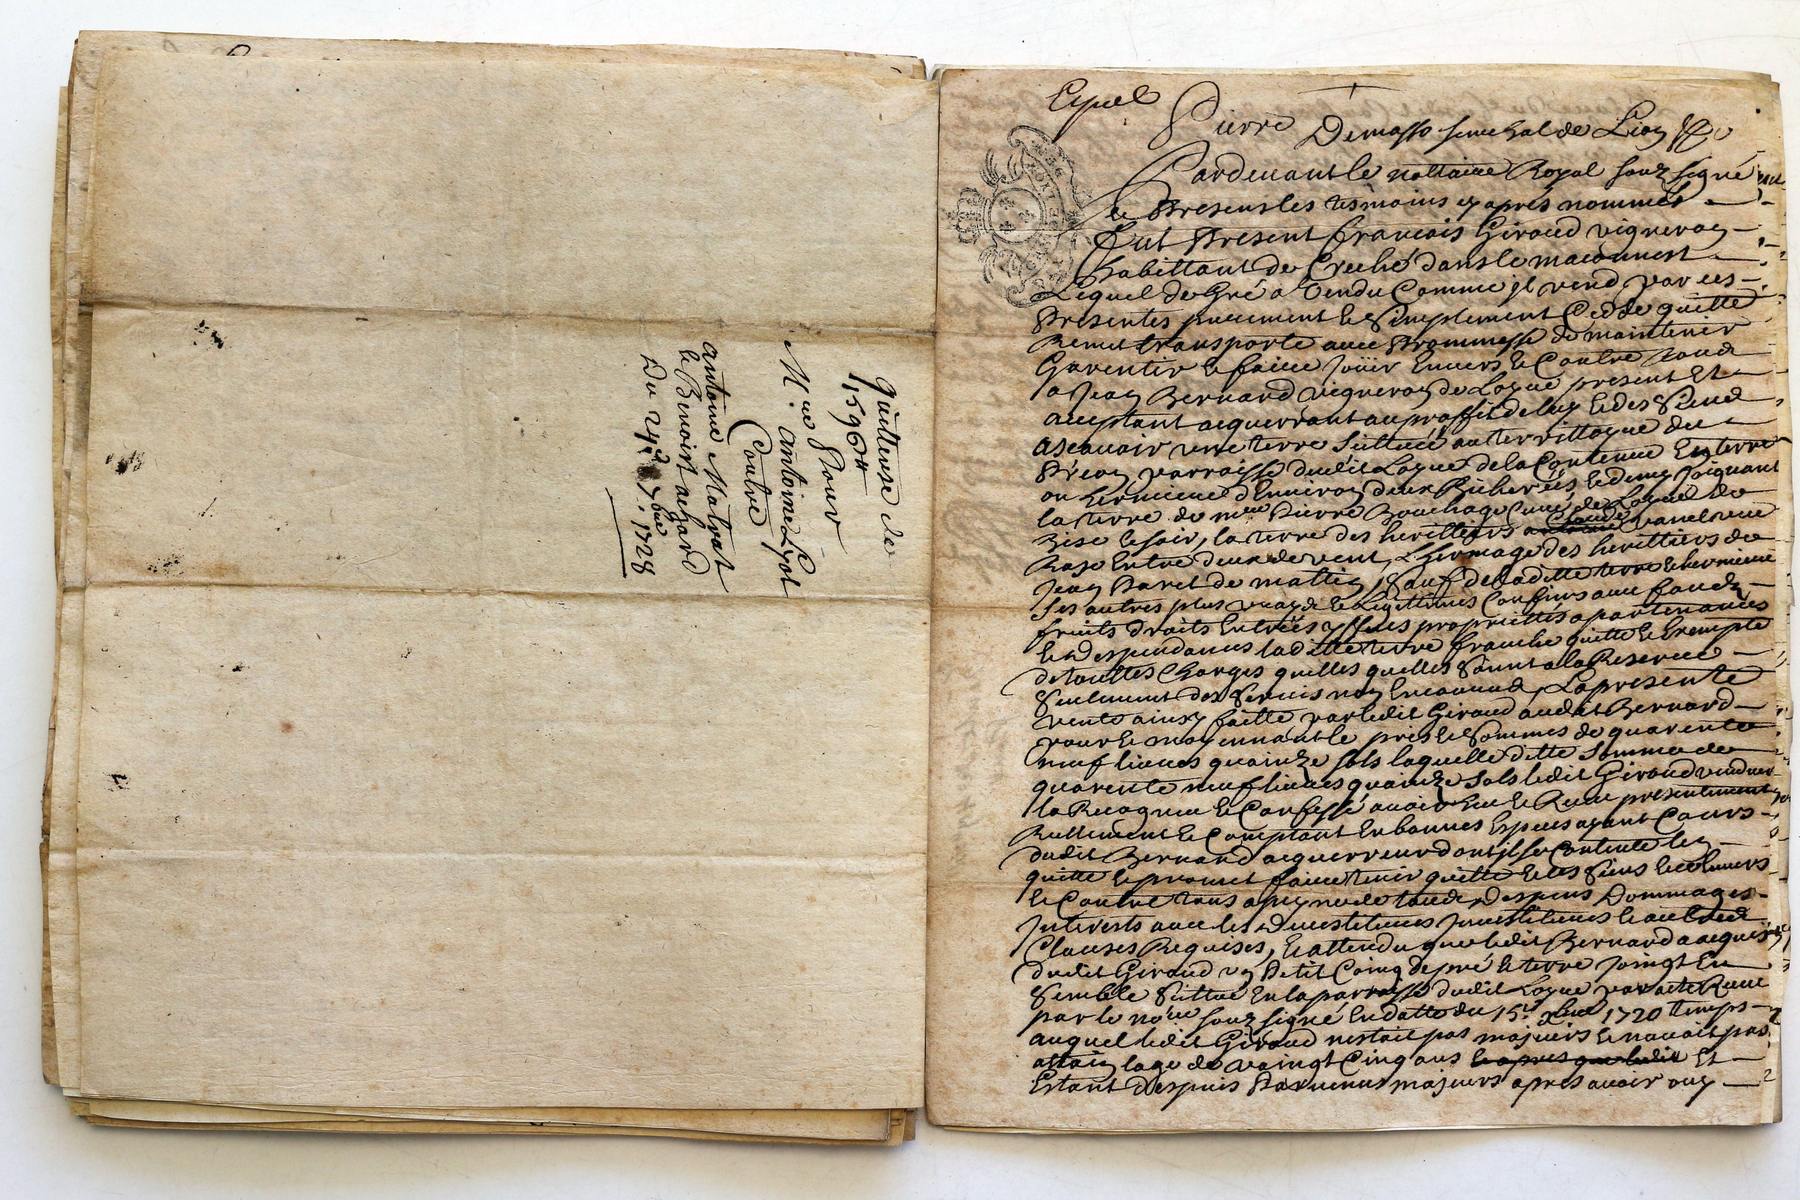 Quittense de
1596 ₶
Pour
Mre antoine Lyot
Contre
antoine Malvat
& Benoist azard
Du 24e 7bre 1728
Expel
Pierre Demasso senechal de Lion &c
Pardevant le nottaire Royal souz signé
& Presents les tesmoins cy apres nommes
fut Present francois Giroud vigneron
habittant de Creche dans le maconnest
Lequel de Gré a Vendu Comme jl vend par ces
Presentes purement & Simplement Cedde quitte
Remet transporte avec Prommesse de maintenir
Garentir & faire Jouir Envers & Contre tous
a Jean Bernard vigneron de Loyse present Et
acceptant acquerrant au proffit de luy & des Siens
ascavoir une terre Sittuee au territtoyre de
parroisse dudit Loyse de la Contenue En terre
ou hermiture d'Environ deux Bicherees & demy Joignant
la terre de mre Pierre Bouchage Curé de Loyse de
Bise & soir, la terre des herittiers Claude
Entre deux de vent, L'hermage des herittiers de
Jean de mattin, Sauf de laditte terre & hermiture
ses autres plus vrays & Legittimes Confins avec fonds
fruits droits Entrées yssues propriettés apartenances
& Despendances laditte terre franche quitte & Exempte
de touttes Charges quelles quelles Soint a la Reserve
Seulement des Servis noz Encourus, La presente
vente ainsy faitte par ledit Giroud audit Bernard
pour & moyennant le pris & Sommes de quarente
neuf livres quainze sols laquelle ditte Somme de
quarente neuf livres quainze sols ledit Giroud vendeur
la Recognu & Confessé avoir Eu & Receu presentement
Rellement & Comptant En bonnes Especes ayant Cours
dudit Bernard acquerreur dont jl se Contente les
quitte & promet faire tenir quitte & les Siens Envers
& Contre tous a peyne de tous Despens Dommages
Jnterests avec les Devestitures Jnvestitures & autres
Clauses Requises, & attendu que ledit Bernard a acquis
dudit Giroud un Petit Coing de pré & terre Joingt En
Semble Sittué En la parroisse dudit Loyse par acte Receu
par le nore souz signé En datte du 15e 1720 temps
auquel ledit Giroud nestait pas majeurs & navait pas
attain lage de vaingt Cing ans Et
Estant Despuis Parvenus majeurs apres avoir ouy